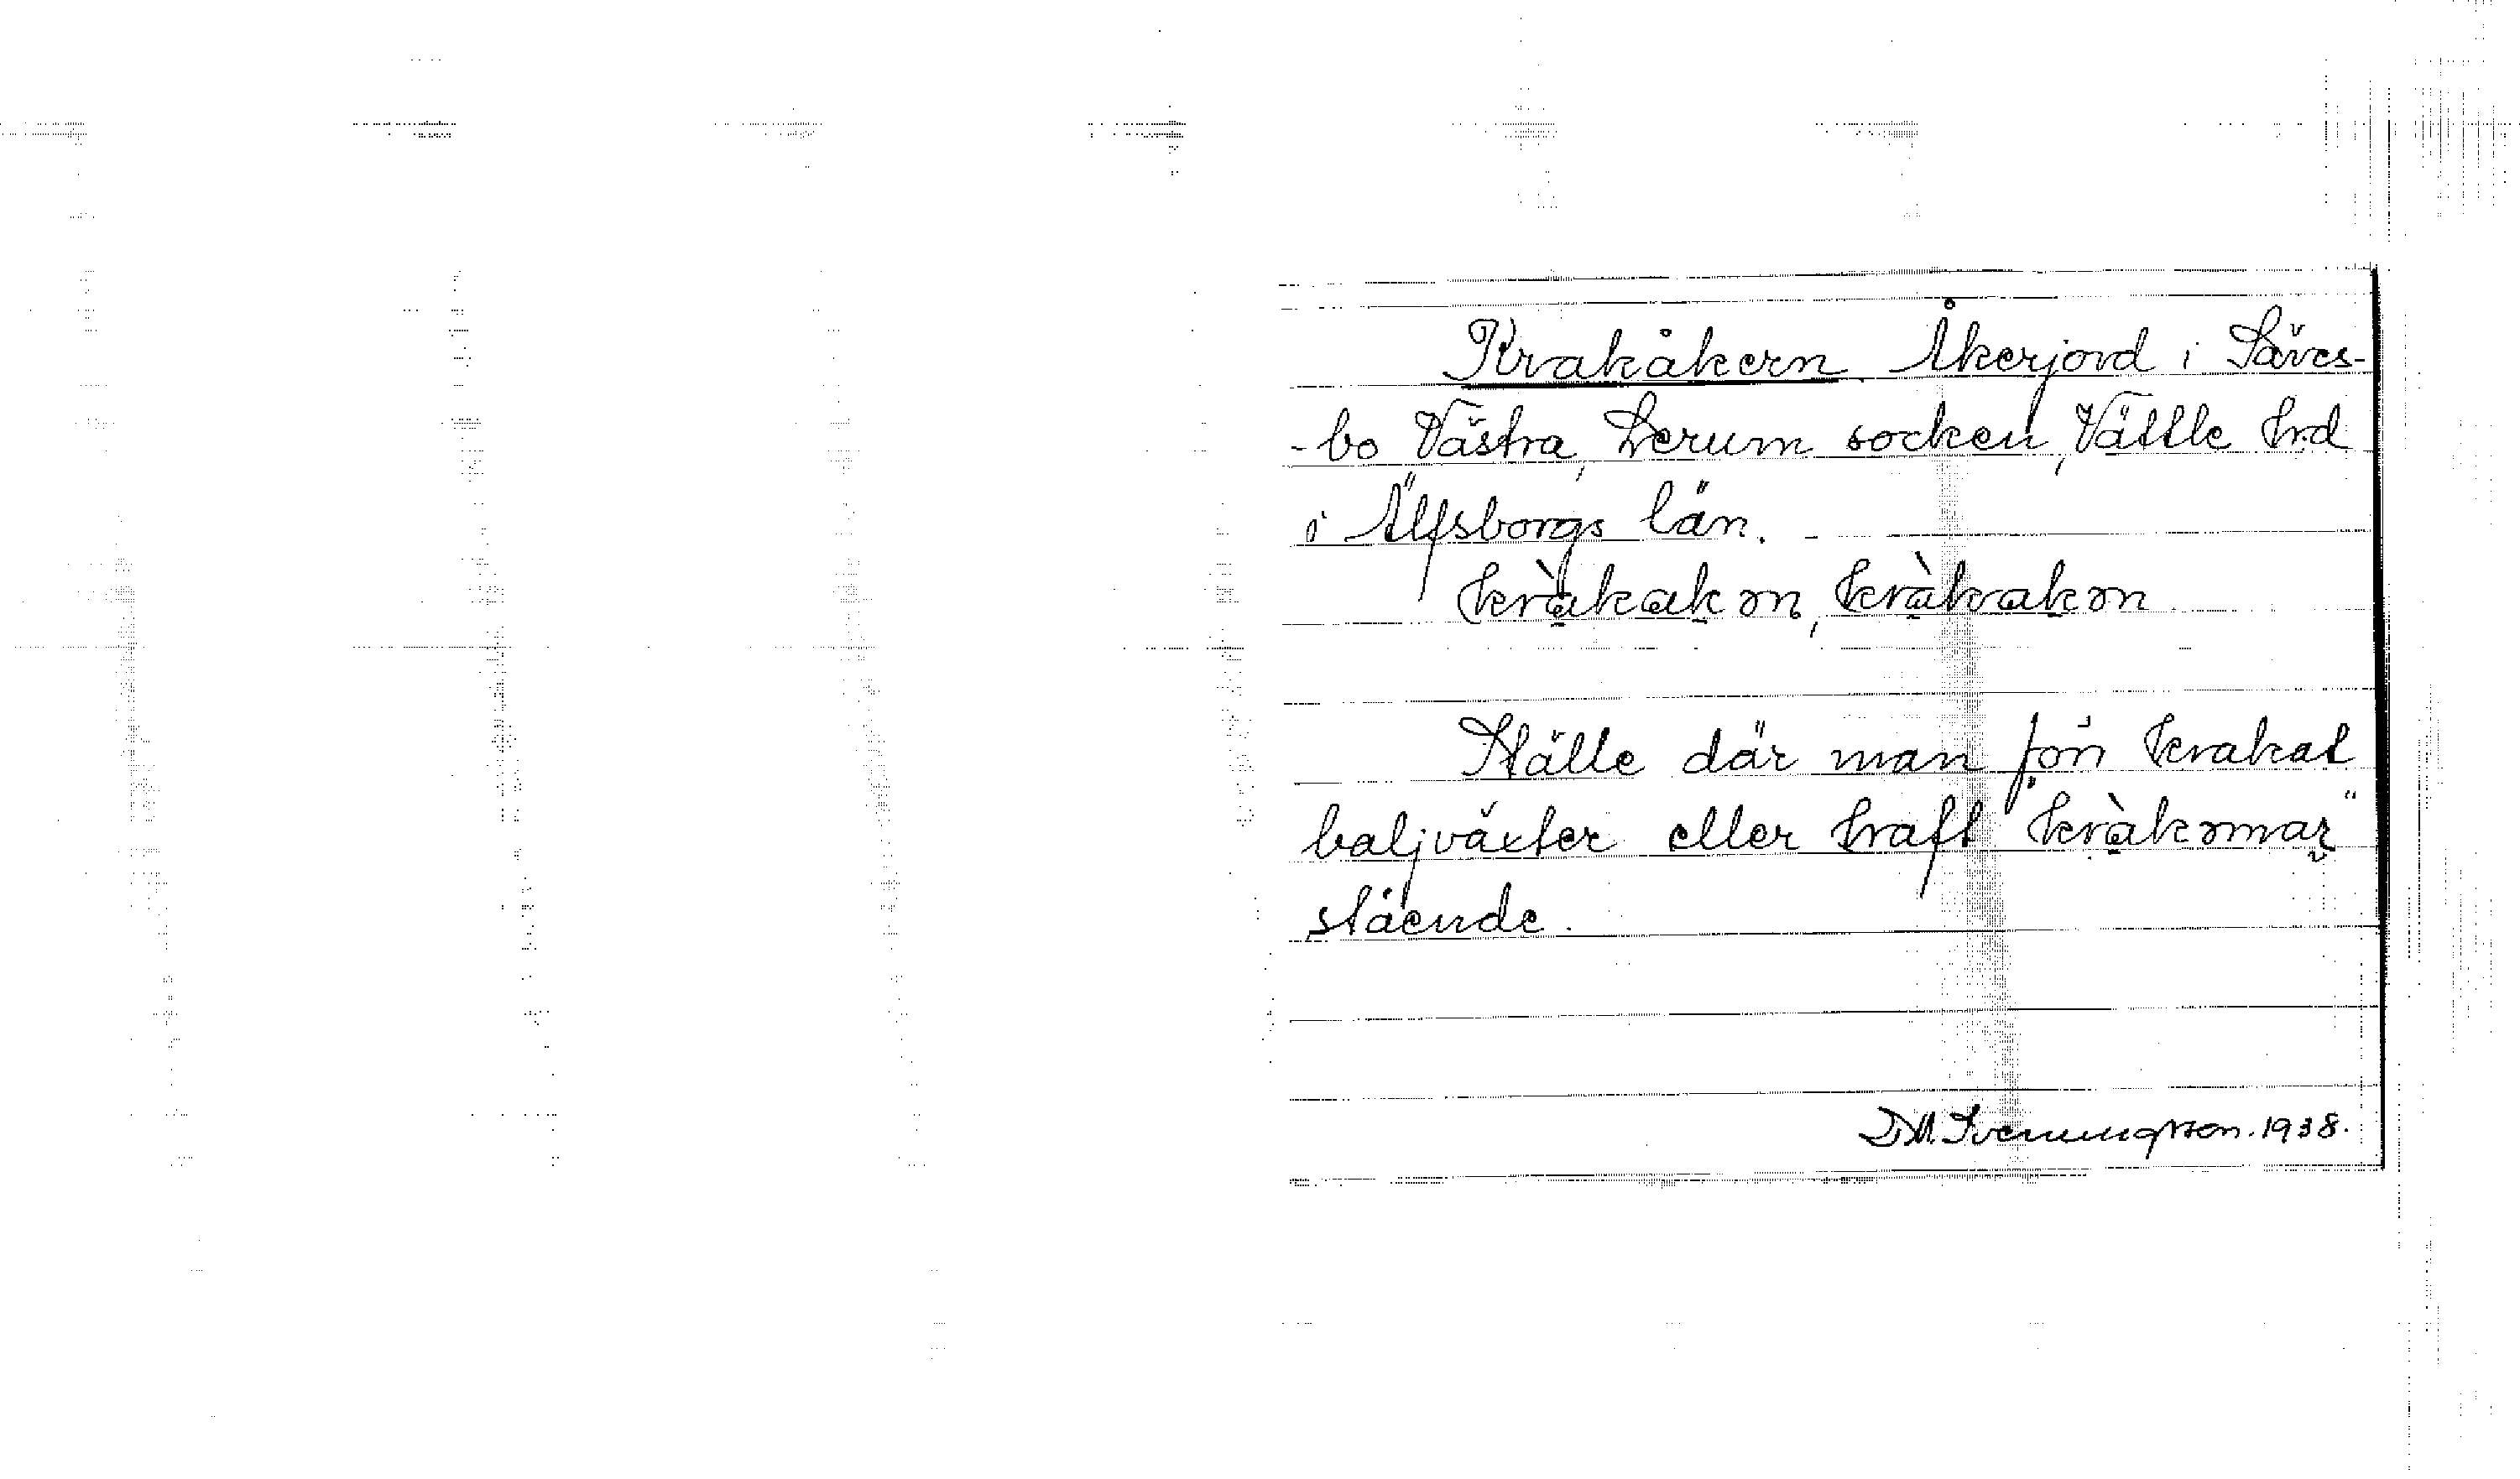 Krakåkern. Åkerjord i Säves-
-bo Västra, Lerum socken, Vättle hrd
i Älfsborgs län. -
kràkakən, kràkvakən
Ställe där man förr krakat
baljväxter eller haft "kràkənar"
stående.
D.M. Sveningsson. 1938.